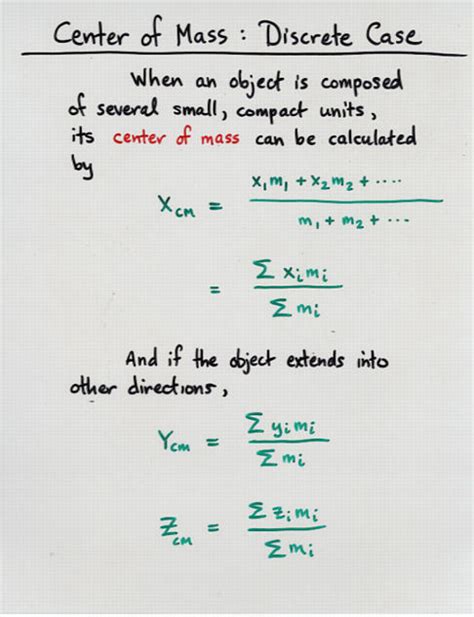 Center of Mass : Discrete Case
When an object is composed
of several small, compact units,
its center of mass can be calculated
by
x₁m₁ + x₂m₂ + ····
X_CM = ―――――――
m₁ + m₂ + ···
= Σ xᵢmᵢ / Σ mᵢ
And if the object extends into
other directions,
Y_CM = Σ yᵢmᵢ / Σ mᵢ
Z_CM = Σ zᵢmᵢ / Σ mᵢ